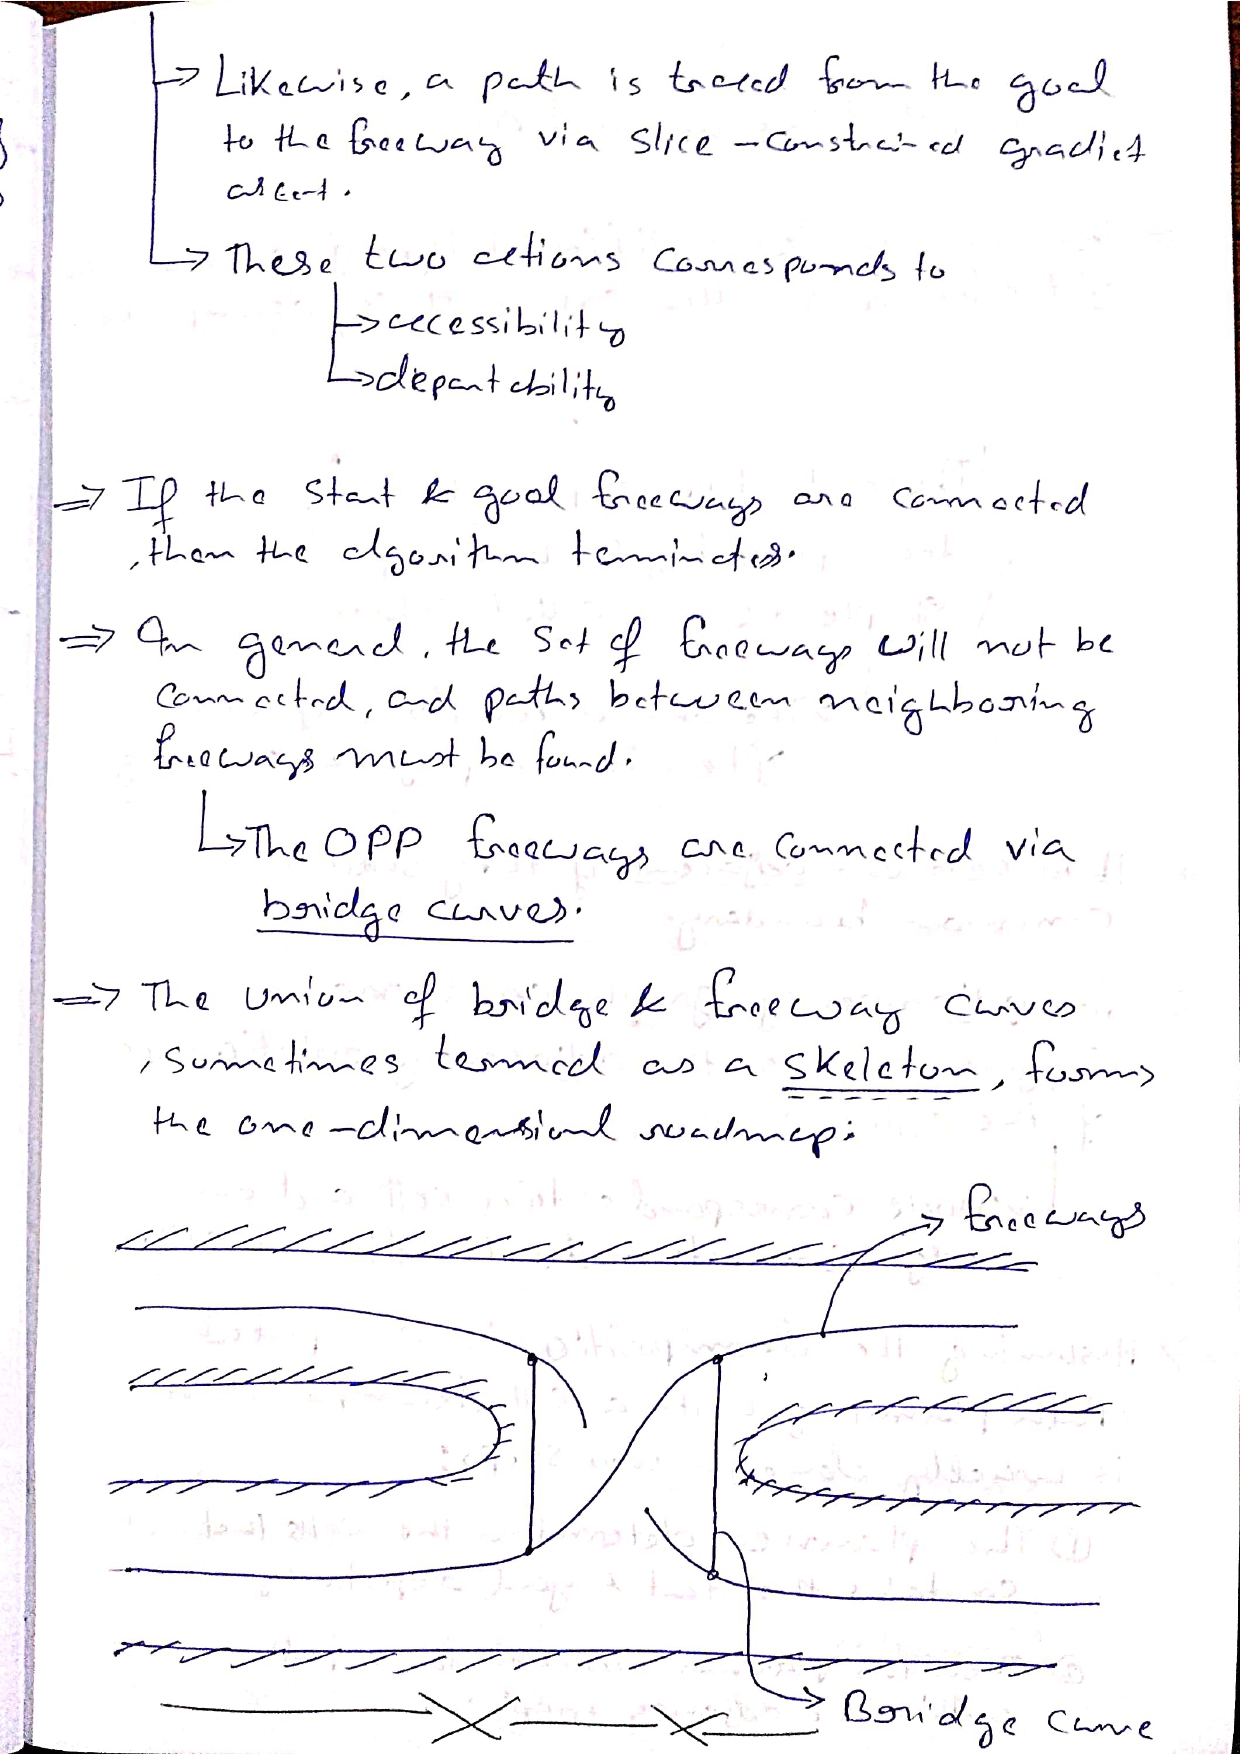 → Likewise, a path is traced from the goal
to the freeway via slice-constrained gradiet
ascent.
→ These two actions corresponds to
→ accessibility
→ departability
⇒ If the start & goal freeways are connected
, then the algorithm terminates.
⇒ In general, the set of freeways will not be
connected, and paths between neighboring
freeways must be found.
→ The OPP freeways are connected via
bridge curves.
⇒ The union of bridge & freeway curves
, sometimes termed as a skeleton, forms
the one-dimensional roadmap:
→ freeways
→ Bridge curve